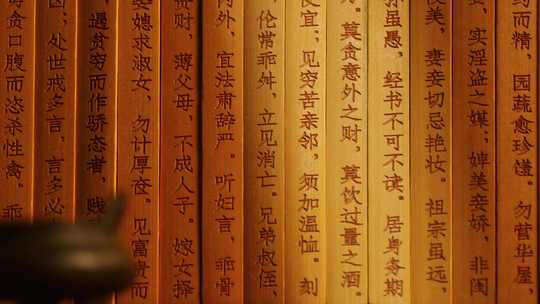 约而精，园蔬愈珍馐。勿营华屋，
，实淫盗之媒，婢美妾娇，非闺
俊美，妻妾切忌艳妆。祖宗虽远，
孙虽愚，经书不可不读。居身务期
莫贪意外之财，莫饮过量之酒。
便宜；见穷苦亲邻，须加温恤。刻
伦常乖舛，立见消亡。兄弟叔侄，
内外，宜法肃辞严。听妇言，乖骨
资财，薄父母，不成人子。嫁女择
娶媳求淑女，勿计厚奁。见富贵而
遇贫穷而作骄态者，贱
凶。处世戒多言，言多必
贪口腹而恣杀性禽。乖